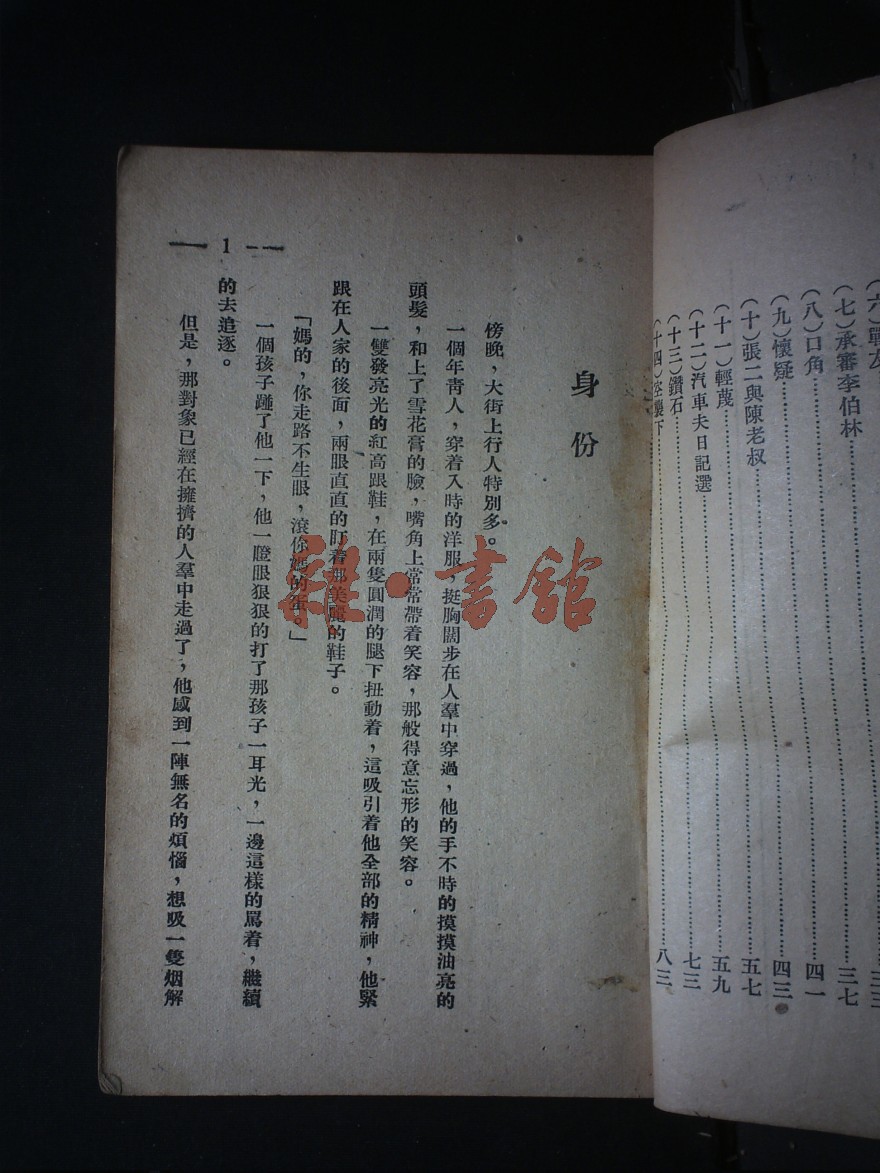 (六)戰友……三三
(七)承審李伯林……三七
(八)口角……四一
(九)懷疑……四三
(十)張二與陳老叔……五七
(十一)輕蔑……五九
(十二)汽車夫日記選
(十三)鑽石……七三
(十四)空襲下……八三
身份
傍晚,大街上行人特別多。
一個年青人,穿着入時的洋服,挺胸闊步在人羣中穿過,他的手不時的摸摸油亮的
頭髮,和上了雪花膏的臉,嘴角上常常帶着笑容,那般得意忘形的笑容。
一雙發亮光的紅高跟鞋,在兩隻圓潤的腿下扭動着,這吸引着他全部的精神,他緊
跟在人家的後面,兩眼直直的盯着那美麗的鞋子。
「媽的,你走路不生眼,滾你媽的蛋。」
一個孩子踫了他一下,他一瞪眼狠狠的打了那孩子一耳光,一邊這樣的罵着,繼續
的去追逐。
但是,那對象已經在擁擠的人羣中走過了,他感到一陣無名的煩惱,想吸一隻烟解
— 1 —
雜·書館